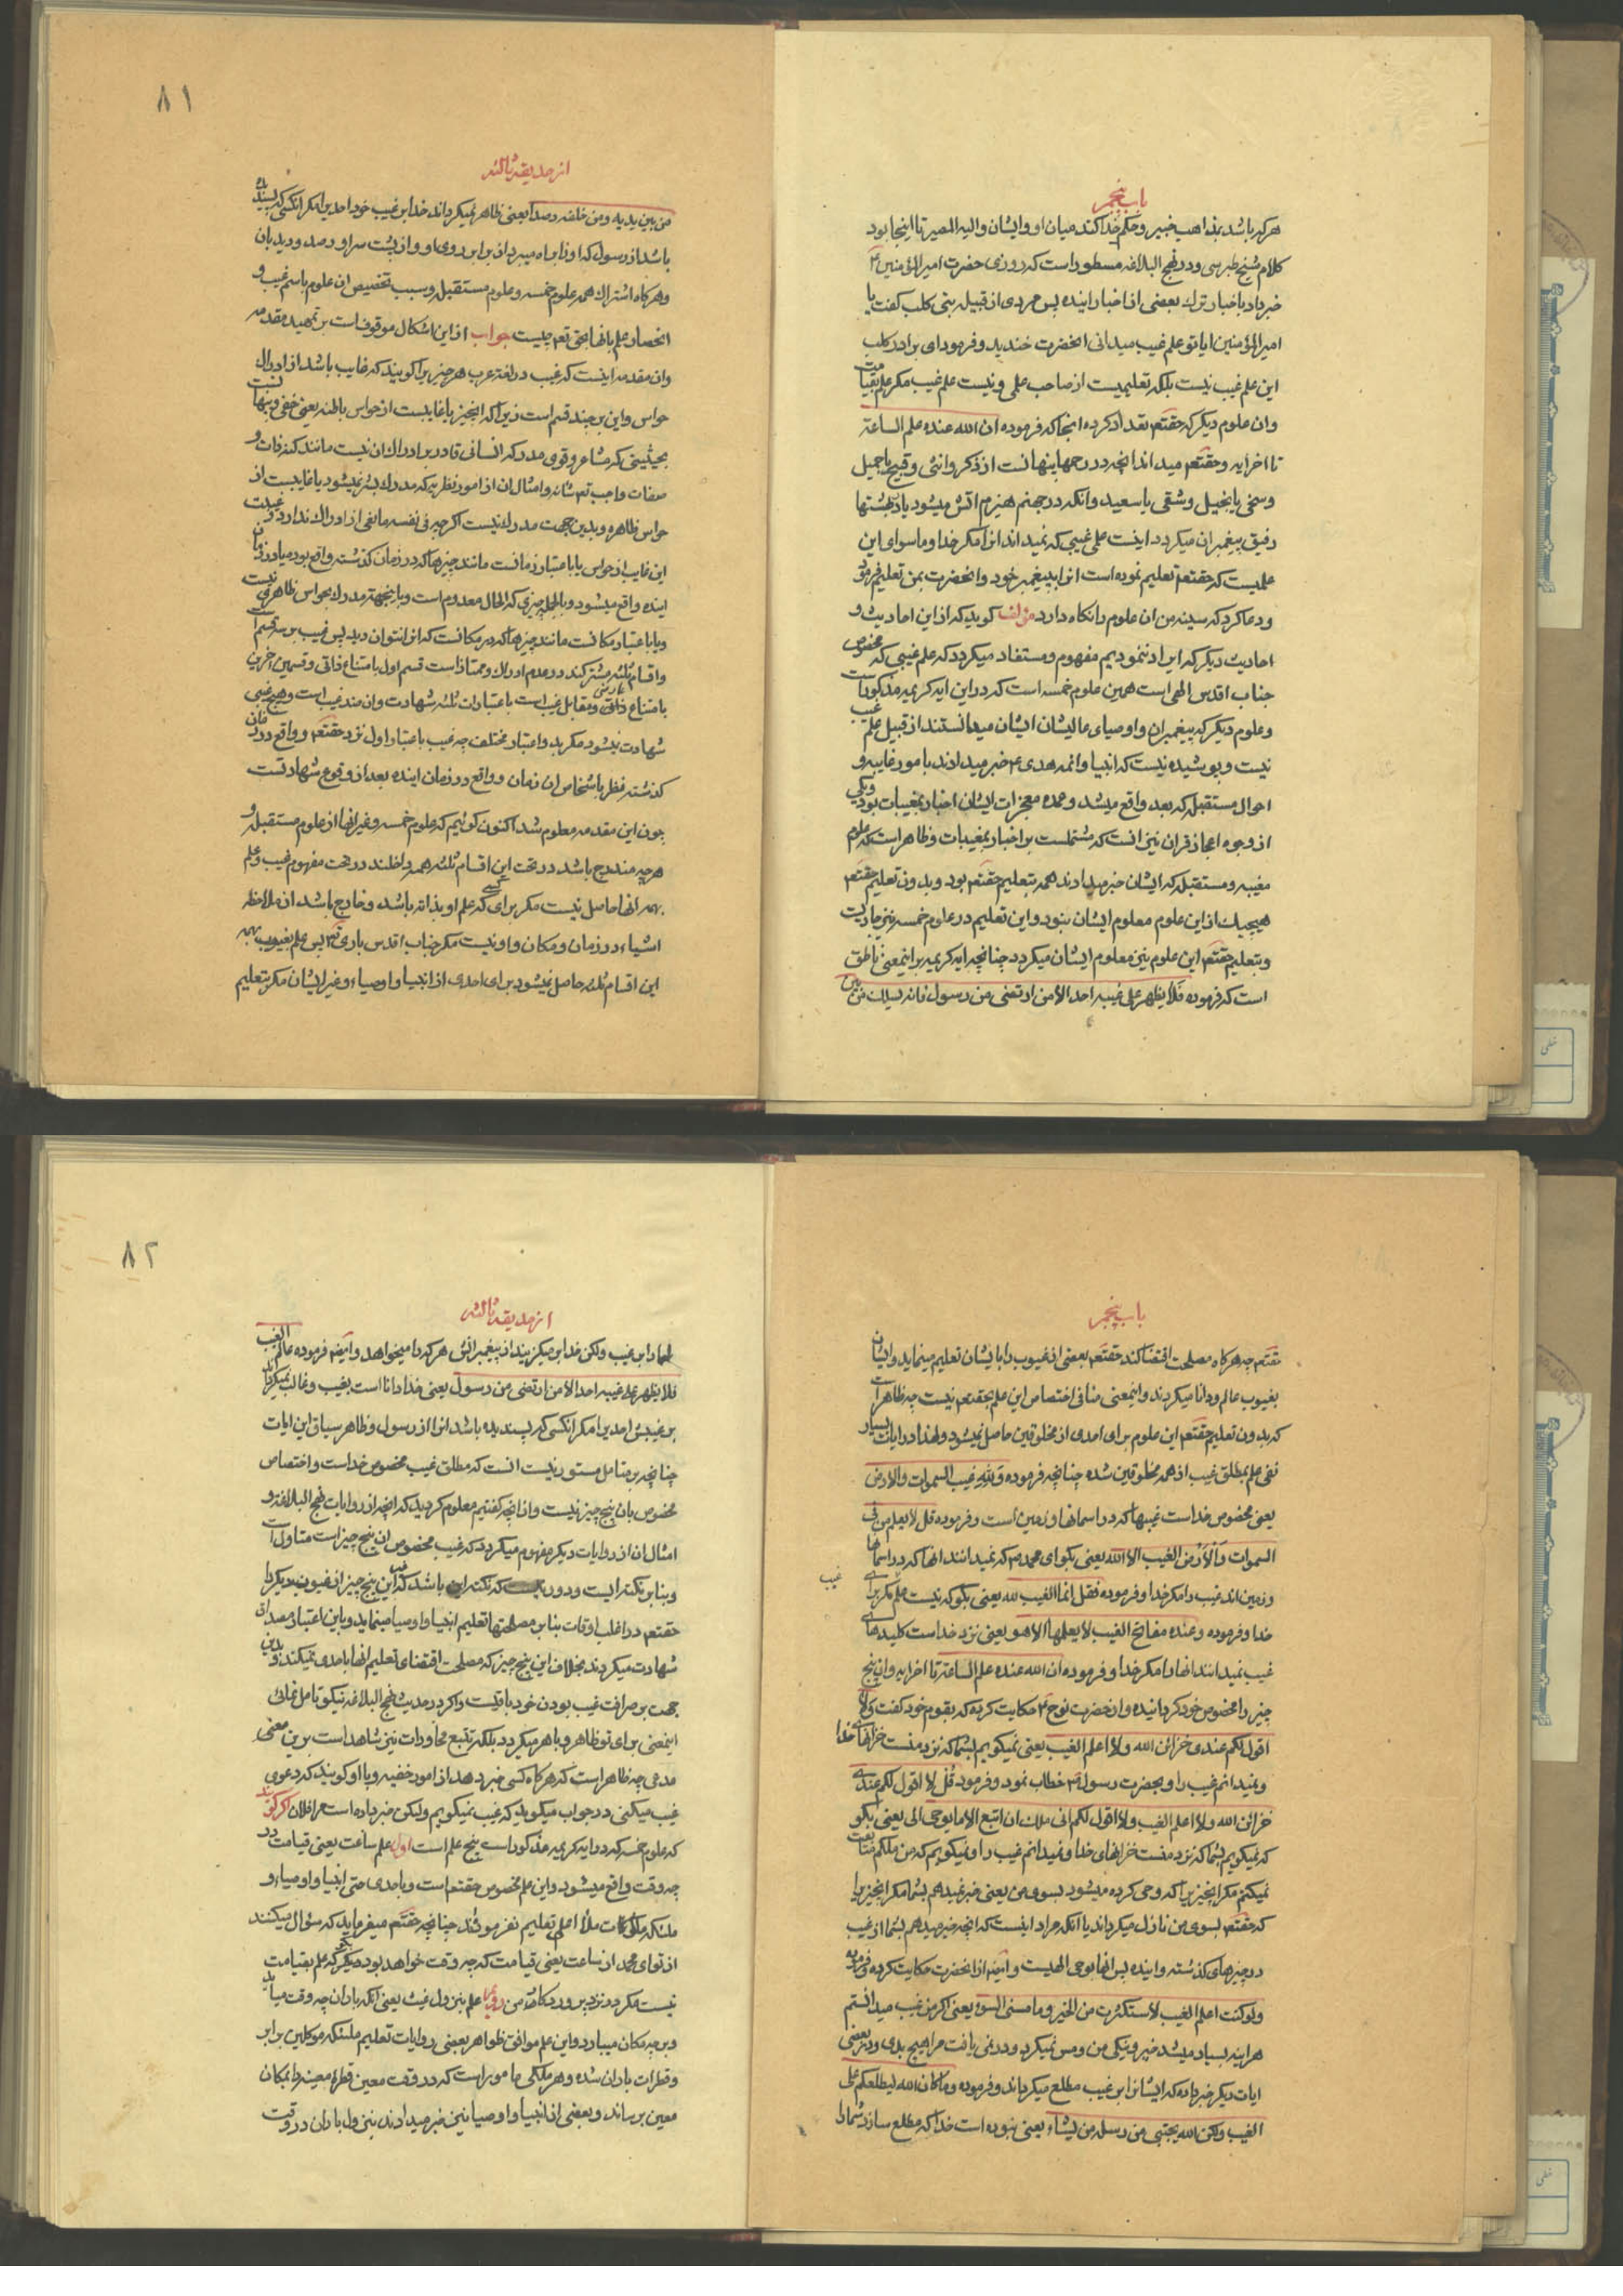 باب پنجم
هرکه باشد بمذاهب خبیر و حکم خدا کند میان او و ایشان والیه المصیر تا اینجا بود
کلام شیخ طبرسی و در نهج البلاغه مسطور است که روزی حضرت امیرالمؤمنین ع
خبر داد باخبار ترک بعضی از اخبار اینده پس مردی از قبیله بنی کلب کفت یا
امیرالمؤمنین ایا تو علم غیب میدانی انحضرت خندید و فرمود ای برادر کلب
این علم غیب نیست بلکه تعلیمیست از صاحب علمی و نیست علم غیب مکر علم بقیامت
وان علوم دیکر که حقتعم تعداد کرده انجا که فرموده ان الله عنده علم الساعة
تا اخر ایه و حقتعم میداند انچه در رحمها پنهانست از ذکر و انثی و قبیح یا جمیل
و سخی یا بخیل و شقی یا سعید و انکه در جهنم هیزم اتش میشود یا در بهشتها
رفیق پیغمبران میکردد اینست علم غیبی که نمیداند انرا مکر خدا و ماسوای این
علمیست که حقتعم تعلیم نموده است انرا به پیغمبر خود و انحضرت بمن تعلیم فرمود
و دعا کرد که سینه من ان علوم را نکاه دارد مؤلف کوید که از این احادیث و
احادیث دیکر که ایراد ننمودیم مفهوم و مستفاد میکردد که علم غیبی که مخصوص
جناب اقدس الهی است همین علوم خمسه است که در این ایه کریمه مذکور است
و علوم دیکر که پیغمبران و اوصیای عالیشان ایشان میدانستند از قبیل علم غیب
نیست و پوشیده نیست که انبیا و ائمه هدی ع خبر میدادند بامور غایبه و
احوال مستقبله که بعد واقع میشد و عمده معجزات ایشان اخبار بمغیبات بود و یکی
از وجوه اعجاز قران نیز انست که مشتملست بر اخبار بمغیبات و ظاهر است که علوم
مغیبه و مستقبله که ایشان خبر میدادند همه بتعلیم حقتعم بود و بدون تعلیم حقتعم
هیچیک از این علوم معلوم ایشان نبود و این تعلیم در علوم خمسه نیز جاریست
و بتعلیم حقتعم این علوم نیز معلوم ایشان میکردد چنانچه ایه کریمه بر اینمعنی ناطق
است که فرموده فلا یظهر علی غیبه احدا الا من ارتضی من رسول فانه یسلک من بین
۸۱
از حدیقه ثالثه
من بین یدیه و من خلفه رصدا یعنی ظاهر نمیکرداند خدا بر غیب خود احدیرا مکر انکسی که پسندیده
باشد از رسول که او را براه میبرد از برابر روی او و از پشت سر او رصد و دیدبان
و هرکاه اشتراک همه علوم خمسه و علوم مستقبله و سبب تخصیص ان علوم باسم غیب و
انحصار علم بانها بحق تعم چیست جواب از این اشکال موقوفست بر تمهید مقدمه
وان مقدمه اینست که غیب در لغة عرب هر چیزیرا کویند که غایب باشد از ادراک
حواس و این بر چند قسم است زیرا که انچیز یا غایبست از حواس باطنه یعنی خفی و پنهانست
بحیثیتی که مشاعر و قوی مدرکه انسانی قادر بر ادراک ان نیست مانند کنه ذات و
صفات واجب تعم شانه و امثال ان از امور نظریه که مدرک بشر نمیشود یا غایبست از
حواس ظاهره و بدین جهت مدرک نیست اکرچه فی نفسه مانعی از ادراک ندارد و
این غایب از حواس یا باعتبار زمانست مانند چیزها که در زمان کذشته واقع بوده یا در زمان
اینده واقع میشود و بالجمله چیزی که الحال معدوم است و باینجهة مدرک بحواس ظاهری نیست
و یا باعتبار مکانست مانند چیزها که در مکانست که انرا نتوان دید پس غیب بر سه قسم است
و اقسام ثلثه مشترکند در عدم ادراک و ممتاز است قسم اول بامتناع ذاتی و قسمین اخرین
بامتناع عارضی و مقابل غیب است باعتبارات ثلثه شهادت وان ضد غیب است و هیچ غیبی
شهادت نمیشود مکر بدو اعتبار مختلف چه غیب باعتبار اول نزد حقتعم و واقع در زمان
کذشته نظر باشخاص ان زمان و واقع در زمان اینده بعد از وقوع شهادتست
چون این مقدمه معلوم شد اکنون کوئیم که علوم خمسه و غیر انها از علوم مستقبله و
هرچه مندرج باشد در تحت این اقسام ثلثه همه داخلند در تحت مفهوم غیب و علم
بهمه انها حاصل نیست مکر برای کسی که علم او بذاته باشد و خارج باشد از ملاحظه
اشیاء در زمان و مکان و او نیست مکر جناب اقدس باری تعم پس علم بغیوب بهمه
این اقسام ثلثه حاصل نمیشود برای احدی از انبیا و اوصیاء و غیر ایشان مکر بتعلیم
باب پنجم
حقتعم چه هرکاه مصلحت اقتضا کند حقتعم بعضی از غیوب را بایشان تعلیم مینماید و ایشان
بغیوب عالم و دانا میکردند و اینمعنی منافی اختصاص این علم بحقتعم نیست چه ظاهر است
که بدون تعلیم حقتعم این علوم برای احدی از مخلوقین حاصل نمیشود و لهذا در ایات بسیار
نفی علم بمطلق غیب از همه مخلوقین شده چنانچه فرموده ولله غیب السموات والارض
یعنی مخصوص خداست غیبها که در اسمانها و زمین است و فرموده قل لا یعلم من فی
السموات والارض الغیب الا الله یعنی بکو ای محمد ص که نمیدانند انها که در اسمانها
و زمین اند غیب را مکر خدا و فرموده فقل انما الغیب لله یعنی بکو که نیست علم مکر برای
غیب
خدا و فرموده و عنده مفاتح الغیب لا یعلمها الا هو یعنی نزد خداست کلیدهای
غیب نمیدانند انها را مکر خدا و فرموده ان الله عنده علم الساعة تا اخر ایه وان پنج
چیز را مخصوص خود کردانیده و از حضرت نوح ع حکایت کرده که بقوم خود کفت ولا
اقول لکم عندی خزائن الله ولا اعلم الغیب یعنی نمیکویم بشما که نزد منست خزانهای خدا
و نمیدانم غیب را و بحضرت رسول ص خطاب نمود و فرمود قل لا اقول لکم عندی
خزائن الله ولا اعلم الغیب ولا اقول لکم انی ملک ان اتبع الا ما یوحی الی یعنی بکو
که نمیکویم بشما که نزد منست خزانهای خدا و نمیدانم غیب را و نمیکویم که من ملکم متابعت
نمیکنم مکر انچیزیرا که وحی کرده میشود بسوی من یعنی خبر نمیدهم بشما مکر انچیزیرا
که حقتعم بسوی من نازل میکرداند یا انکه مراد اینست که انچه خبر میدهم بشما از غیب
در چیزهای کذشته و اینده پس انها بوحی الهیست و ایضم از انحضرت حکایت کرده و فرموده
ولو کنت اعلم الغیب لاستکثرت من الخیر وما مسنی السوء یعنی اکر من غیب میدانستم
هراینه بسیار میشد خیر و نیکی من و مس نمیکرد و در نمی یافت مرا هیچ بدی و در بعضی
ایات دیکر خبر داده که ایشانرا بر غیب مطلع میکرداند و فرموده وما کان الله لیطلعکم علی
الغیب ولکن الله یجتبی من رسله من یشاء یعنی نبوده است خدا که مطلع سازد شما را
۸۲
از حدیقه ثالثه
بر غیب ولکن خدا بر میکزیند از پیغمبرانش هرکه را میخواهد و ایضم فرموده عالم الغیب
فلا یظهر علی غیبه احدا الا من ارتضی من رسول یعنی خدا دانا است بغیب و غالب نمیکرداند
بر غیبش احدیرا مکر انکسی که پسندیده باشد انرا از رسول و ظاهر سیاق این ایات
چنانچه بر متامل مستور نیست انست که مطلق غیب مخصوص خداست و اختصاص
مخصوص بان پنج چیز نیست و از انچه کفتیم معلوم کردید که انچه از روایات نهج البلاغه و
امثال ان از روایات دیکر مفهوم میکردد که غیب مخصوص ان پنج چیز است متاول است
و بنابر نکته ایست و دور نیست که نکته ان باشد که غیر این پنج چیز از غیوب دیکر را
حقتعم در اغلب اوقات بنابر مصلحتها تعلیم انبیا و اوصیا مینماید و باین اعتبار مصداق
شهادت میکردند بخلاف این پنج چیز که مصلحت اقتضای تعلیم انها باحدی نمیکند و بدین
جهت بر صرافت غیب بودن خود باقیست و اکر در حدیث نهج البلاغه نیکو تامل نمائی
اینمعنی برای تو ظاهر و باهر میکردد بلکه تتبع محاورات نیز شاهد است بر این معنی
مدعی چه ظاهر است که هرکاه کسی خبر دهد از امور خفیه و با او کویند که دعوی
غیب میکنی در جواب میکوید که غیب نمیکویم ولیکن خبر داده است مرا فلان اکر کویند
که علوم خمسه که در ایه کریمه مذکور است پنج علم است اول علم ساعت یعنی قیامت که در
چه وقت واقع میشود و این علم مخصوص حقتعم است و باحدی حتی انبیا و اوصیاء و
ملئکه ملکوات ملاء اعلی تعلیم نفرموده چنانچه حقتعم میفرماید که سؤال میکنند
از تو ای محمد از ساعت یعنی قیامت که چه وقت خواهد بود بکو که علم بقیامت
نیست مکر در نزد پروردکار من دویم علم بنزول غیث یعنی انکه باران چه وقت میاید
و در چه مکان میبارد و این علم موافق ظواهر بعضی روایات تعلیم ملئکه موکلین بر ابر
و قطرات باران شده و هر ملکی مامور است که در وقت معین قطره معینه را بمکان
معین برساند و بعضی از انبیا و اوصیا نیز خبر میدادند بنزول باران در وقت